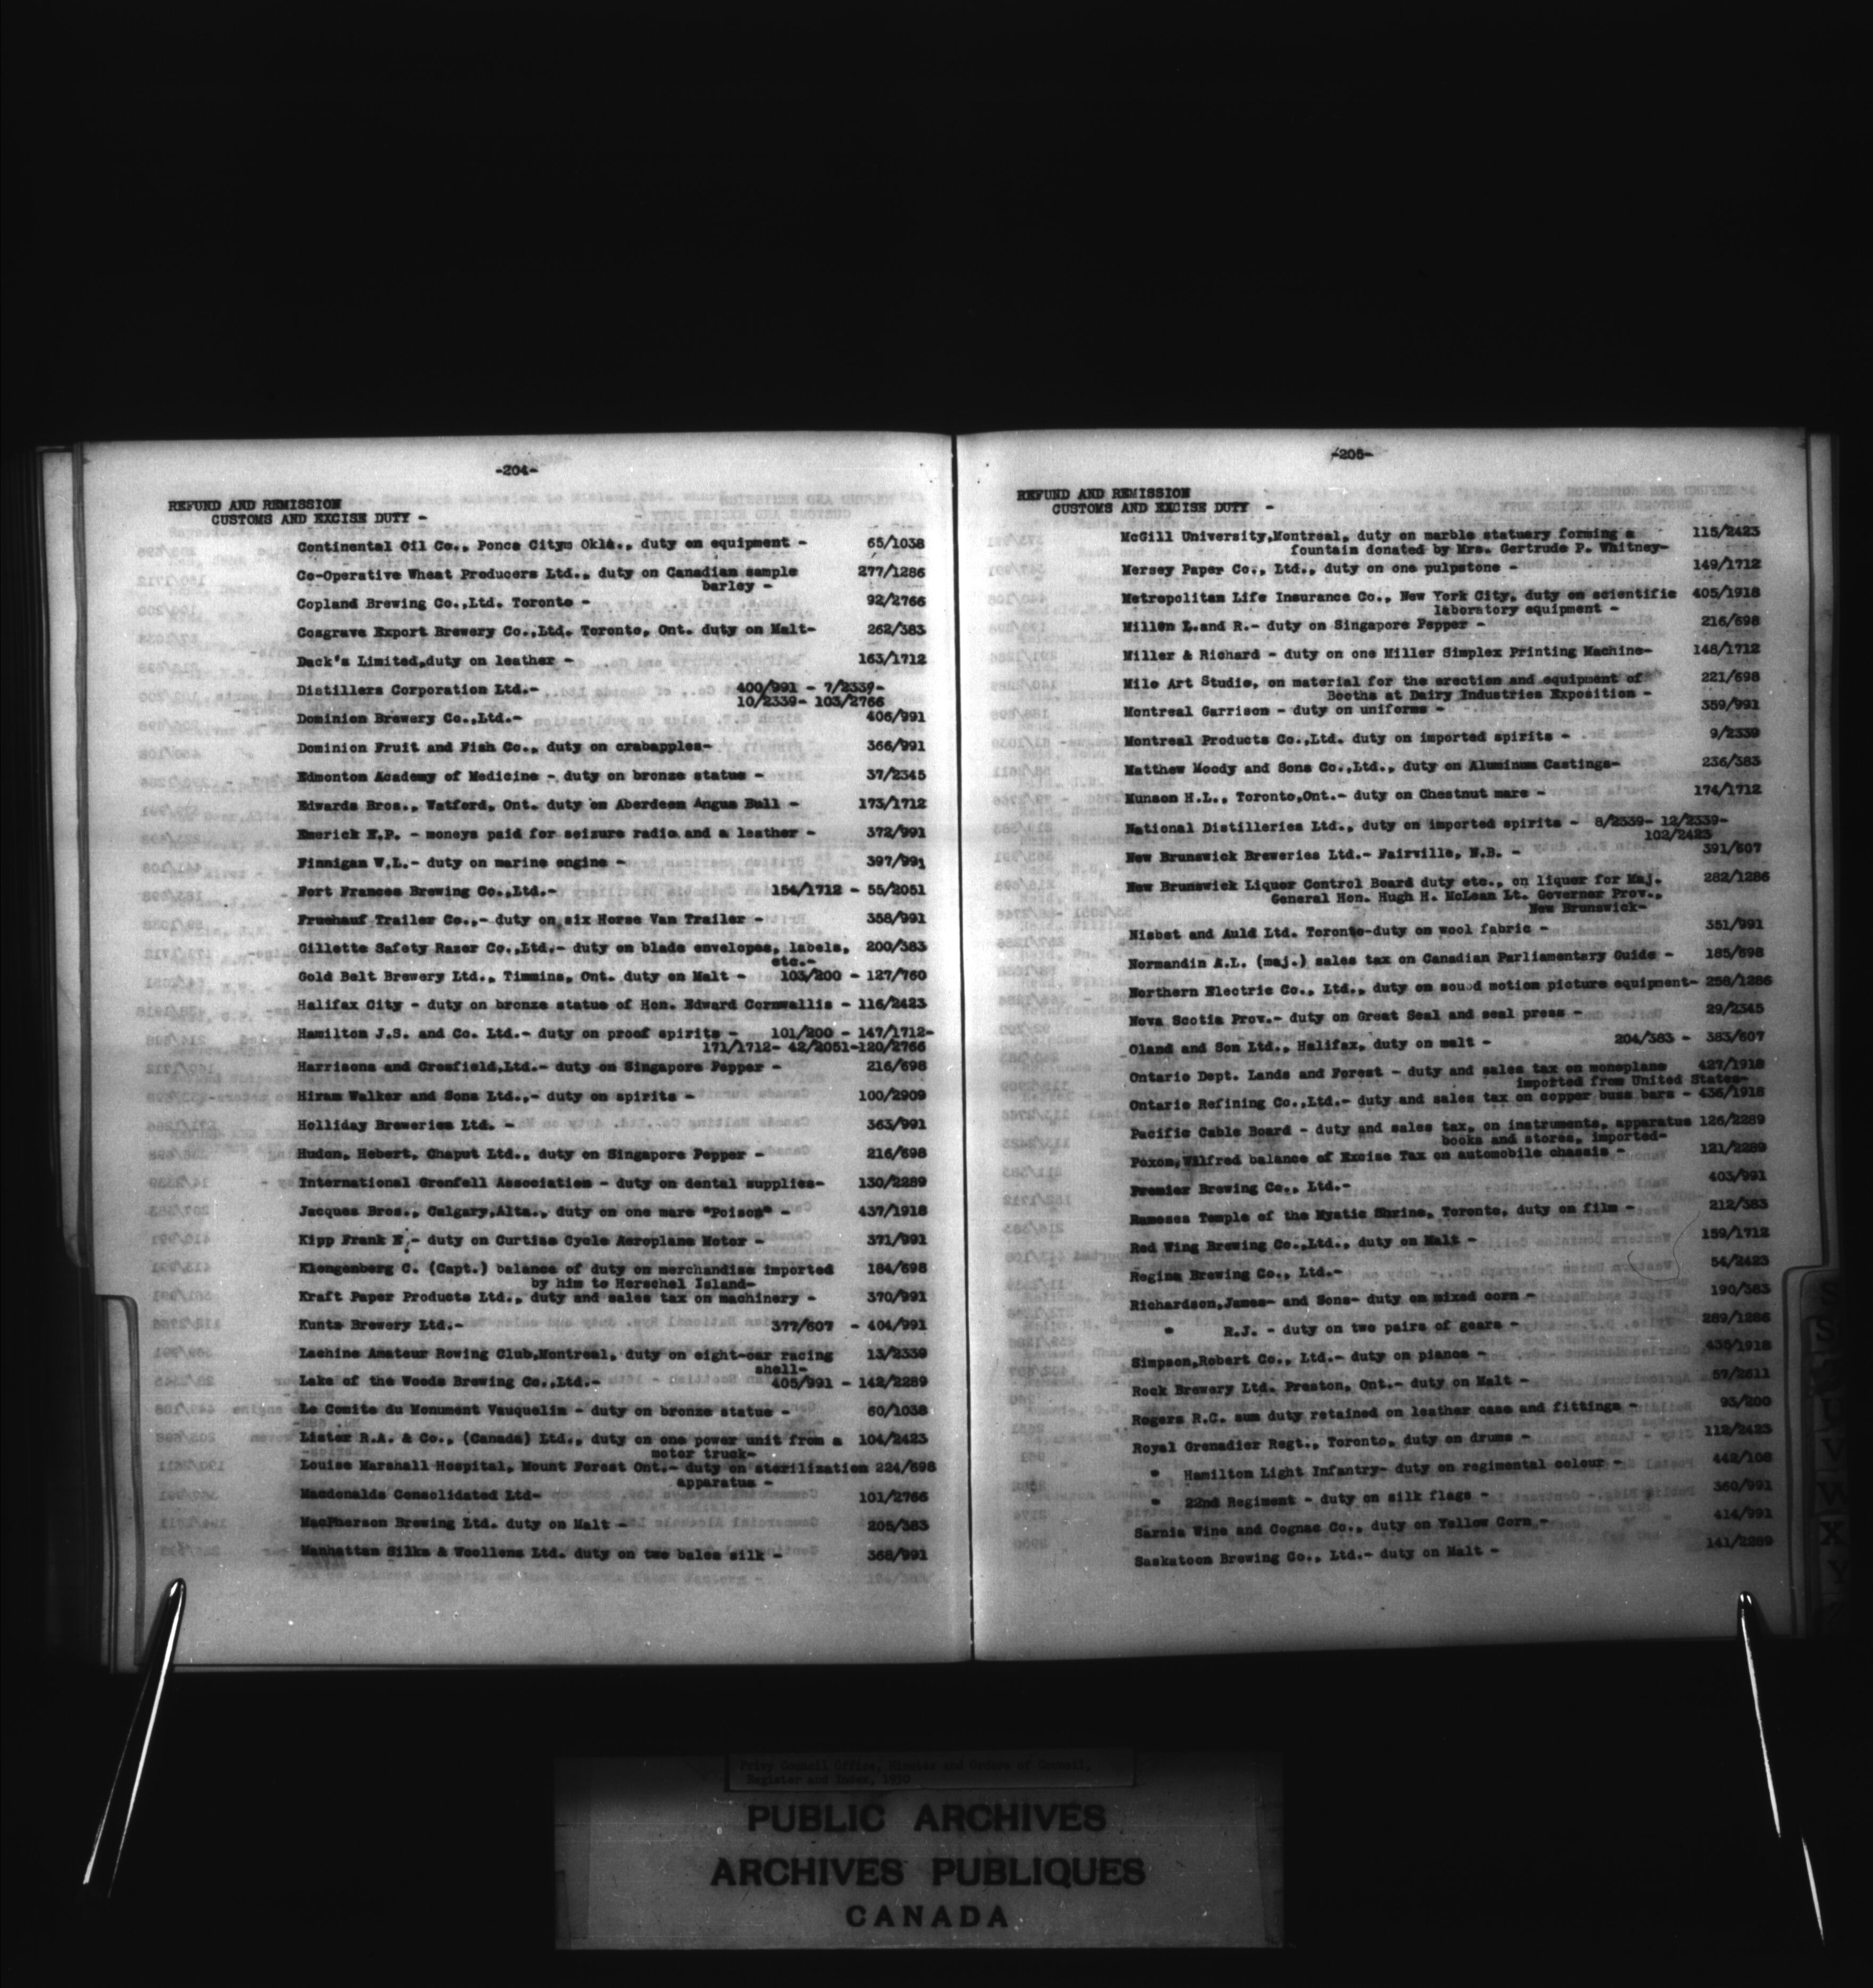 -204-
REFUND AND REMISSION
CUSTOMS AND EXCISE DUTY -
Continental Oil Co., Ponca Citym Okla., duty on equipment - 65/1038
Co-Operative Wheat Producers Ltd., duty on Canadian sample 277/1286
barley -
Copland Brewing Co.,Ltd. Toronto - 92/2766
Cosgrave Export Brewery Co.,Ltd. Toronto, Ont. duty on Malt- 262/383
Dack's Limited,duty on leather - 163/1712
Distillers Corporation Ltd.- 400/991 - 7/2339-
10/2339- 103/2766
Dominion Brewery Co.,Ltd.- 406/991
Dominion Fruit and Fish Co., duty on crabapples- 366/991
Edmonton Academy of Medicine - duty on bronze status - 37/2345
Edwards Bros., Watford, Ont. duty on Aberdeen Angus Bull - 173/1712
Emerick N.P. - moneys paid for seizure radio and a leather - 372/991
Finnigan W.L.- duty on marine engine - 397/991
Fort Frances Brewing Co.,Ltd.- 154/1712 - 55/2051
Fruehauf Trailer Co.,- duty on six Horse Van Trailer - 358/991
Gillette Safety Razor Co.,Ltd.- duty on blade envelopes, labels, 200/383
etc.-
Gold Belt Brewery Ltd., Timmins, Ont. duty on Malt - 103/200 - 127/760
Halifax City - duty on bronze statue of Hon. Edward Cornwallis - 116/2423
Hamilton J.S. and Co. Ltd.- duty on proof spirits - 101/200 - 147/1712-
171/1712- 42/2051-120/2766
Harrisons and Crosfield,Ltd.- duty on Singapore Pepper - 216/698
Hiram Walker and Sons Ltd.,- duty on spirits - 100/2909
Holliday Breweries Ltd. - 363/991
Hudon, Hebert, Chaput Ltd., duty on Singapore Pepper - 216/698
International Grenfell Association - duty on dental supplies- 130/2289
Jacques Bros., Calgary,Alta., duty on one mare "Poison" - 437/1918
Kipp Frank N - duty on Curtiss Cycle Aeroplane Motor - 371/991
Klengenberg C. (Capt.) balance of duty on merchandise imported 184/698
by him to Herschel Island-
Kraft Paper Products Ltd., duty and sales tax on machinery - 370/991
Kuntz Brewery Ltd.- 377/607 - 404/991
Lachine Amateur Rowing Club,Montreal, duty on eight-oar racing 13/2339
shell-
Lake of the Woods Brewing Co.,Ltd.- 405/991 - 142/2289
Le Comite du Monument Vauquelin - duty on bronze statue - 60/1038
Lister R.A. & Co., (Canada) Ltd., duty on one power unit from a 104/2423
motor truck-
Louise Marshall Hospital, Mount Forest Ont.- duty on sterilization 224/698
apparatus -
Macdonalds Consolidated Ltd- 101/2766
MacPherson Brewing Ltd. duty on Malt - 205/383
Manhattan Silks & Woollens Ltd. duty on two bales silk - 368/991
-205-
REFUND AND REMISSION
CUSTOMS AND EXCISE DUTY -
McGill University,Montreal, duty on marble statuary forming a 115/2423
fountain donated by Mrs. Gertrude P. Whitney-
Mersey Paper Co., Ltd., duty on one pulpstone - 149/1712
Metropolitan Life Insurance Co., New York City, duty on scientific 405/1918
laboratory equipment -
Millen L.and R.- duty on Singapore Pepper - 216/698
Miller & Richard - duty on one Miller Simplex Printing Machine- 148/1712
Milo Art Studio, on material for the erection and equipment of 221/698
Booths at Dairy Industries Exposition -
Montreal Garrison - duty on uniforms - 359/991
Montreal Products Co.,Ltd. duty on imported spirits - 9/2339
Matthew Moody and Sons Co.,Ltd., duty on Aluminum Castings- 236/383
Munson H.L., Toronto,Ont.- duty on Chestnut mare - 174/1712
National Distilleries Ltd., duty on imported spirits - 8/2339- 12/2339-
102/2423
New Brunswick Breweries Ltd.- Fairville, N.B. - 391/607
New Brunswick Liquor Control Board duty etc., on liquor for Maj. 282/1286
General Hon. Hugh H. McLean Lt. Governor Prov.,
New Brunswick-
Nisbet and Auld Ltd. Toronto-duty on wool fabric - 351/991
Normandin A.L. (maj.) sales tax on Canadian Parliamentary Guide - 185/698
Northern Electric Co., Ltd., duty on sound motion picture equipment- 258/1286
Nova Scotia Prov.- duty on Great Seal and seal press - 29/2345
Oland and Son Ltd., Halifax, duty on malt - 204/383 - 383/607
Ontario Dept. Lands and Forest - duty and sales tax on monoplane 427/1918
imported from United States-
Ontario Refining Co.,Ltd.- duty and sales tax on copper buss bars - 436/1918
Pacific Cable Board - duty and sales tax, on instruments, apparatus 126/2289
books and stores, imported-
Poxon,Wilfred balance of Excise Tax on automobile chassis - 121/2289
Premier Brewing Co., Ltd.- 403/991
Rameses Temple of the Mystic Shrine, Toronto, duty on film - 212/383
Red Wing Brewing Co.,Ltd., duty on Malt - 159/1712
Regina Brewing Co., Ltd.- 54/2423
Richardson,James- and Sons- duty on mixed corn - 190/383
" R.J. - duty on two pairs of gears - 289/1286
Simpson,Robert Co., Ltd.- duty on pianos - 435/1918
Rock Brewery Ltd. Preston, Ont.- duty on Malt - 57/2611
Rogers R.C. sum duty retained on leather case and fittings - 93/200
Royal Grenadier Regt., Toronto, duty on drums - 112/2423
" Hamilton Light Infantry- duty on regimental colour - 442/108
" 22nd Regiment - duty on silk flags - 360/991
Sarnia Wine and Cognac Co., duty on Yellow Corn - 414/991
Saskatoon Brewing Co., Ltd.- duty on Malt - 141/2289
Privy Council Office, Minutes and Orders of Council,
Register and Index, 1930
PUBLIC ARCHIVES
ARCHIVES PUBLIQUES
CANADA